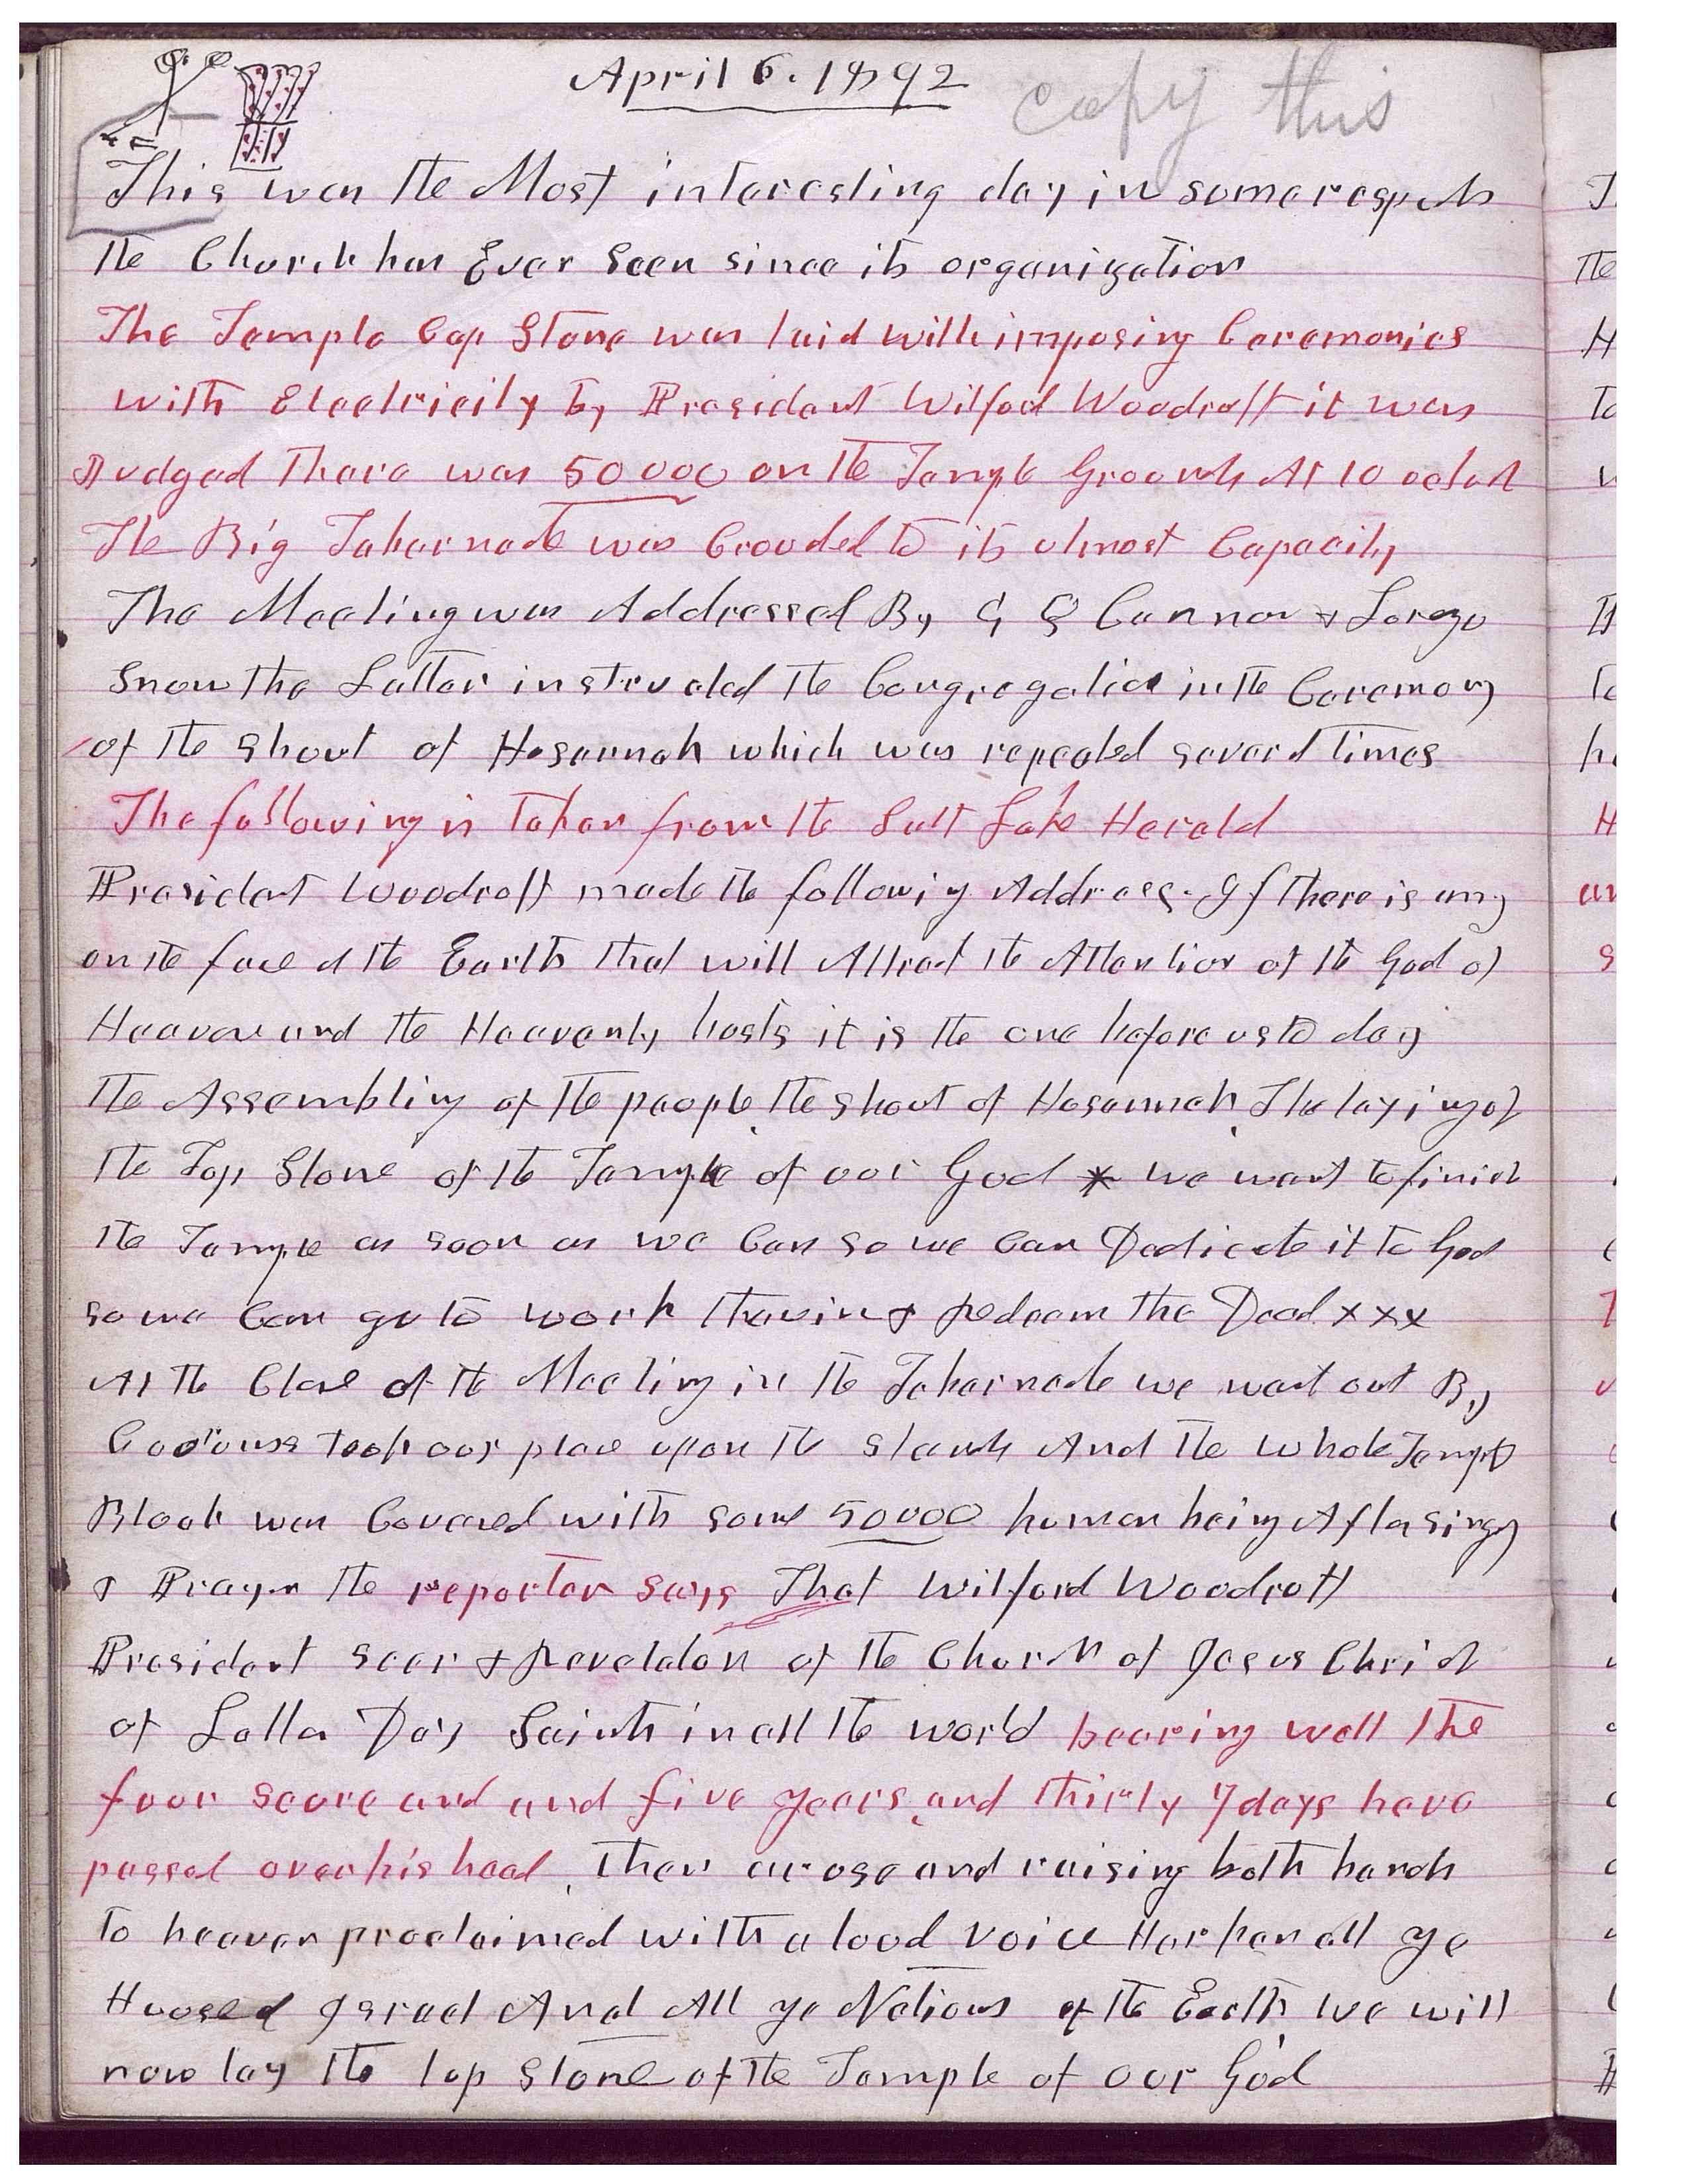 April 6. 1892
copy this
This was the Most interesting day in some respects
the Church has Ever Seen since its organization
The Temple Cap Stone was laid with imposing Ceremonies
with Electricity by President Wilford Woodruff it was
Judged There was 50000 on the Temple Grounds At 10 oclock
The Big Tabernacle was Crouded to its utmost Capacity
The Meeting was Addressed By G Q Cannon & Lorezo
Snow the Latter instructed the Congregation in the Ceremony
of the Shout of Hosannah which was repeated several times
The following is Taken from the Salt Lake Herald
President Woodruff made the followig Address. If there is any
on the face of the Earth that will Attract the Attention of the God of
Heaven and the Heavenly hosts it is the one before us to day
the Assembling of the people, the Shout of Hosannah, The laying of
the Top Stone of the Temple of our God * we want to finish
the Temple as soon as we Can so we Can Dedicate it to God
so we Can go to work therein & Redeem the Dead x x x
At the Close of the Meeting in the Tabernacle we went out By
took our place upon the Stands And the whole Temple
Block was Covered with some 50000 human being After singing
& Prayer the reporter says That Wilford Woodruff
President Seer & Revelator of the Church of Jesus Christ
of Latter Day Saints in all the world bearing well the
four score and and five years, and thirty 7 days have
passed over his head, then arose and raising both hands
to heaven proclaimed with a loud voice Harken all ye
House of Israel And All ye Nations of the Earth, we will
now lay the top Stone of the Temple of our God
J.
the
H
To
w
to
h
H
an
S